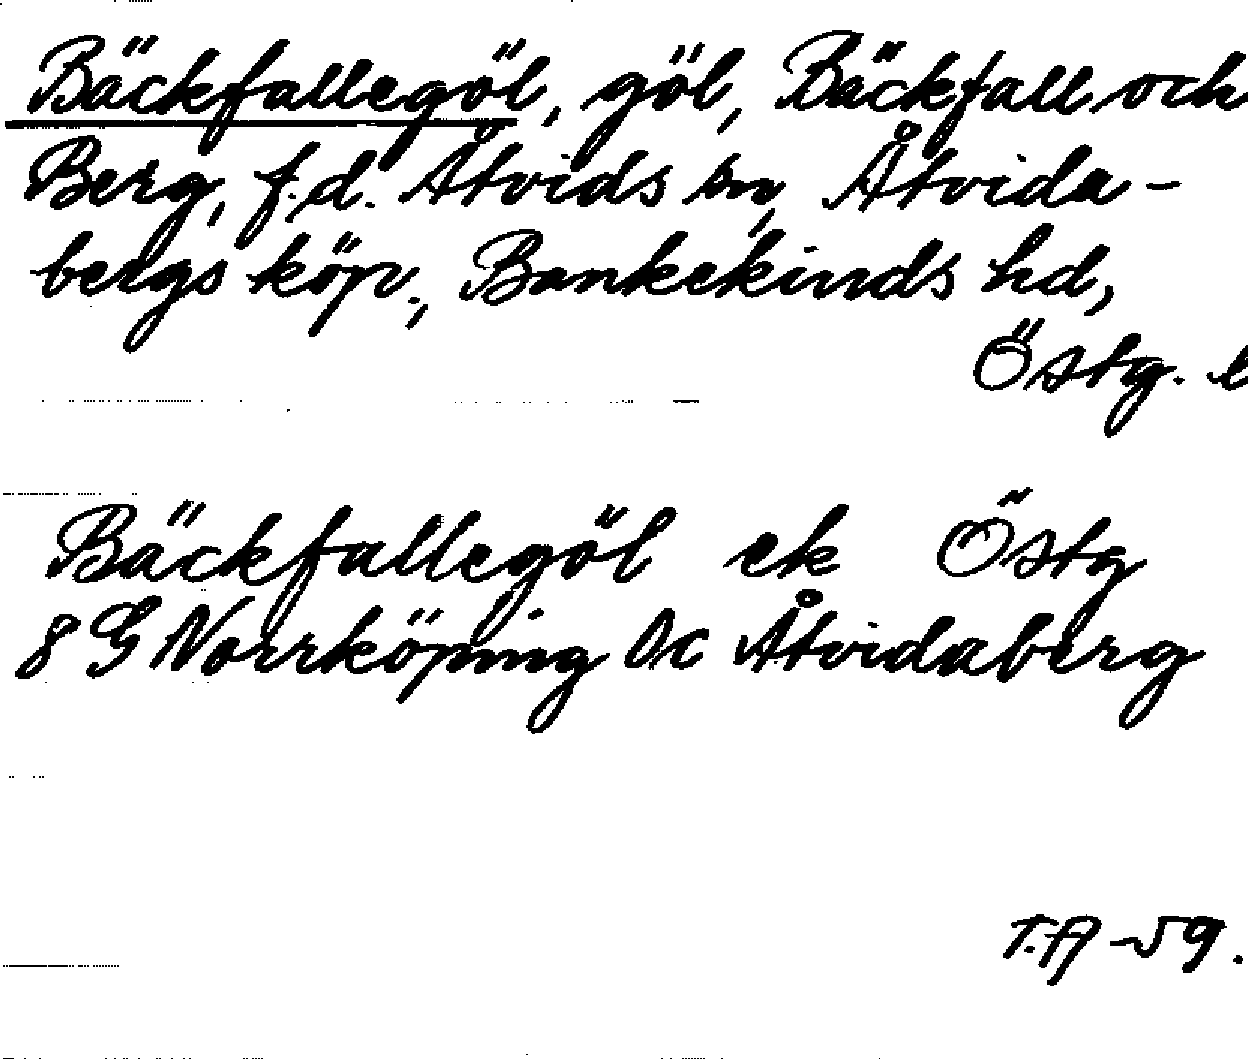 Bäckfallegöl, göl, Bäckfall och
Berg, f.d. Åtvids sn, Åtvida-
bergs köp., Bankekinds hd,
Östg. l
Bäckfallegöl ek Östg
8 G Norrköping Åtvidaberg
T.A -59.